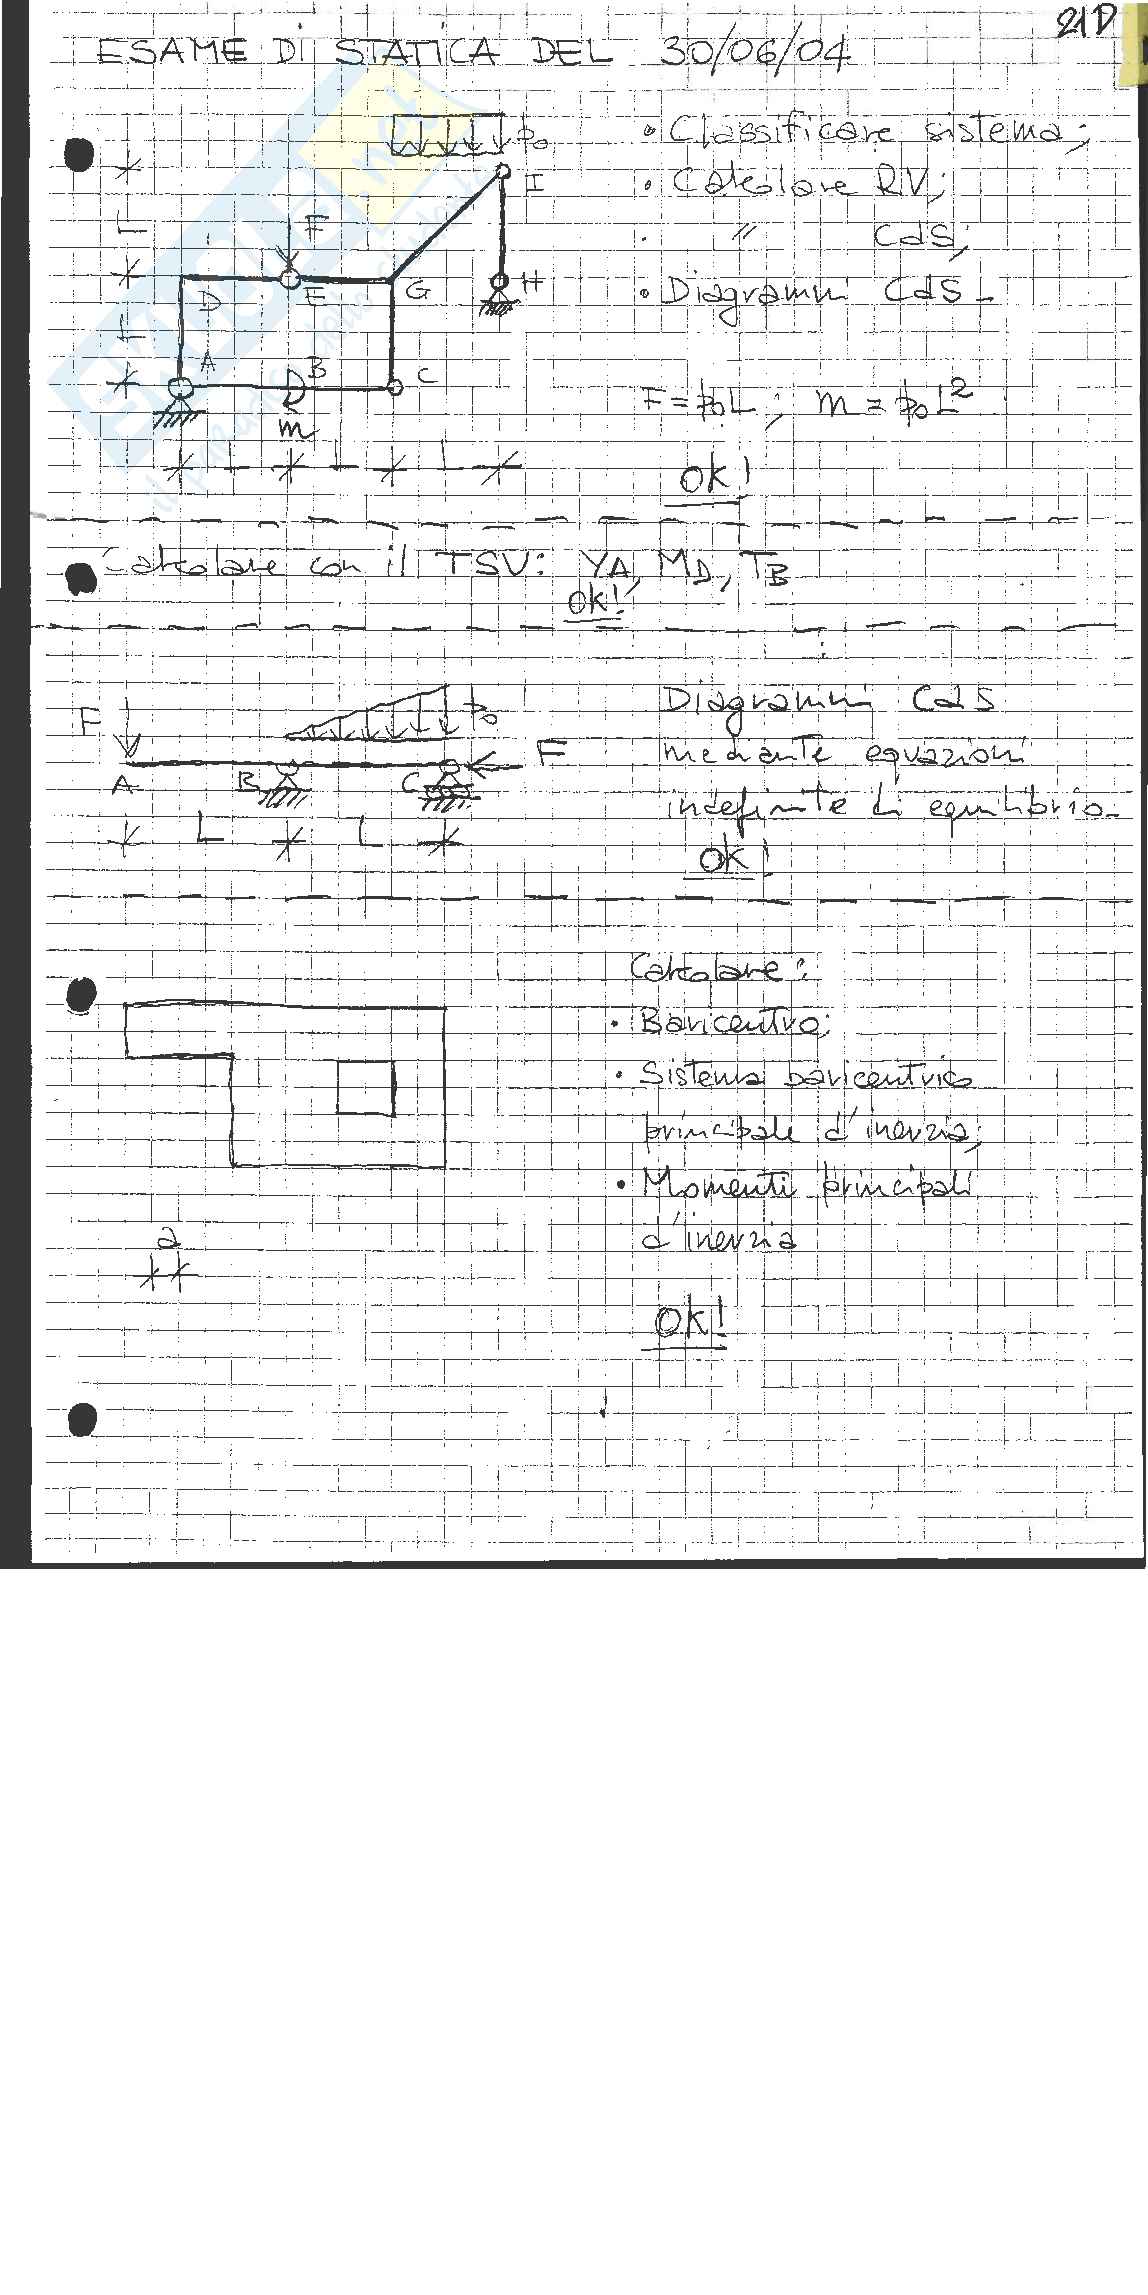 21D
ESAME DI STATICA DEL 30/06/04
p₀
• Classificare sistema;
I
• Calcolare RV;
L
F
" CdS;
D E G H
• Diagrammi CdS
L
A B C
F = p₀L ; m = p₀L²
m
L L L
OK!
Calcolare con il TSV: YA, MD, TB
OK!
F p₀ F
A B C
L L
Diagrammi CdS
mediante equazioni
indefinite di equilibrio
OK!
Calcolare:
• Baricentro;
• Sistema baricentrico
principale d'inerzia;
• Momenti principali
d'inerzia
a
OK!